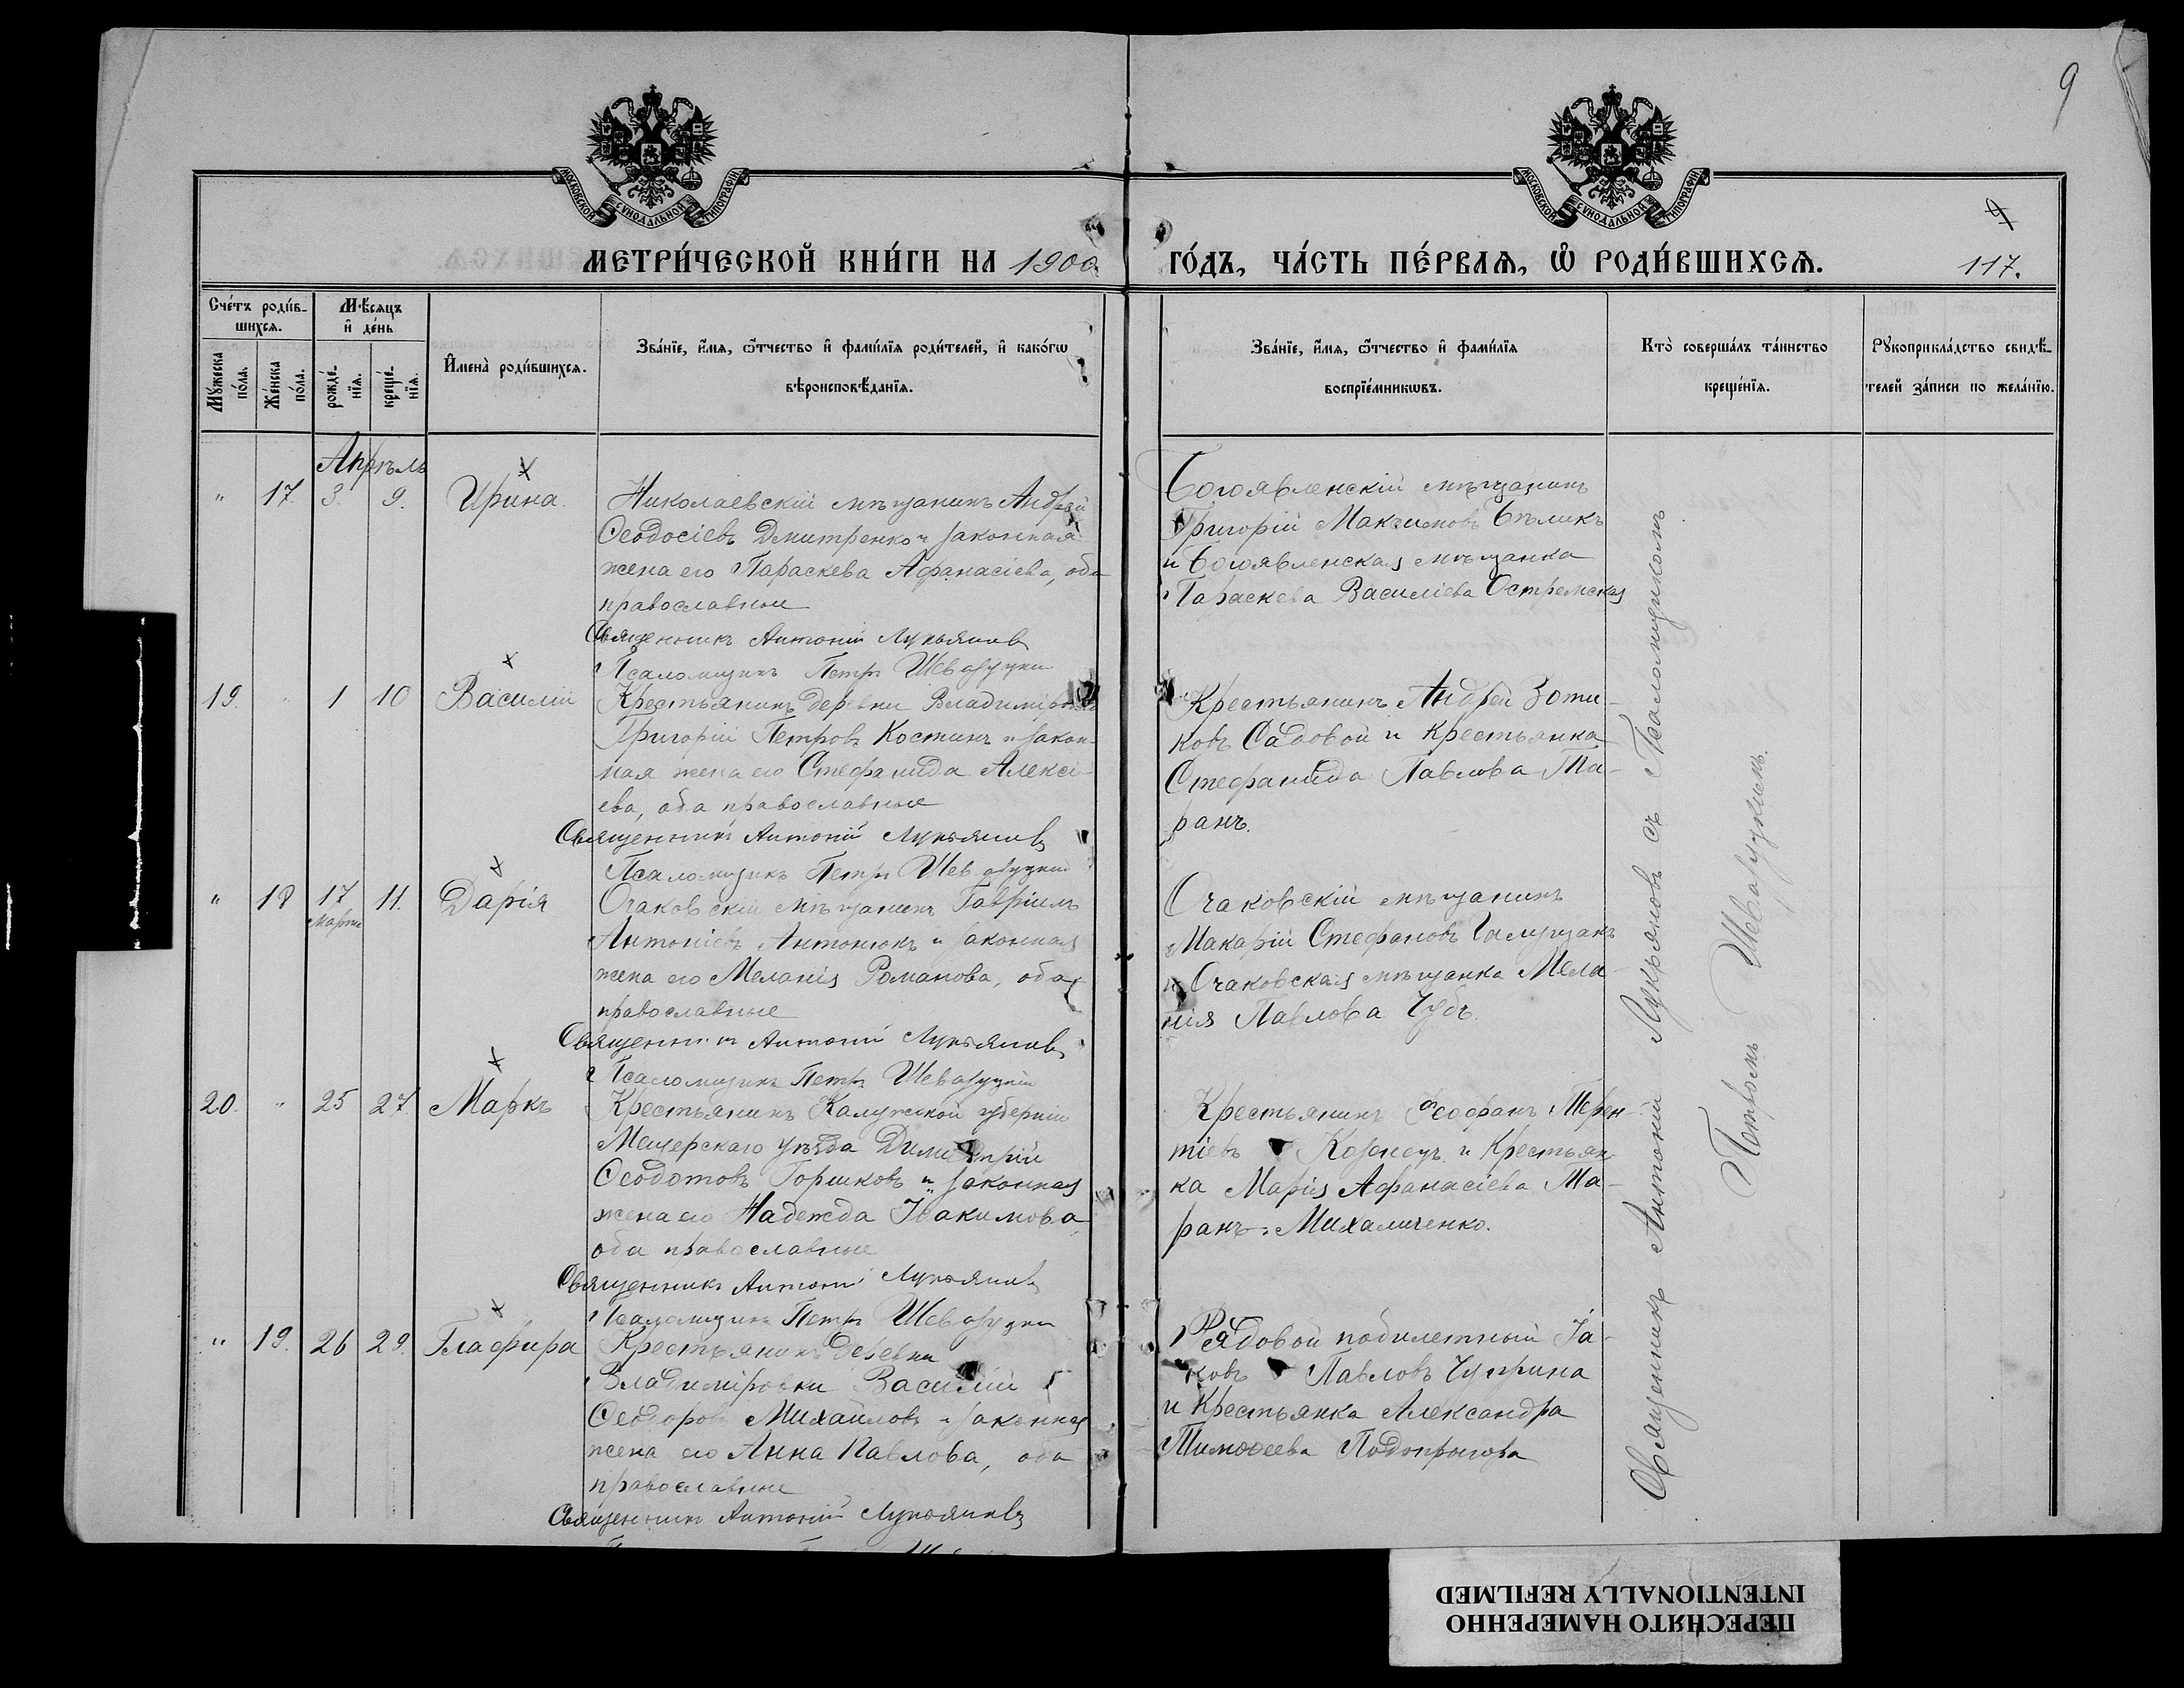 9
МОСКОВСКОЙ СУНОДАЛЬНОЙ ТИПОГРАФІИ
МОСКОВСКОЙ СУНОДАЛЬНОЙ ТИПОГРАФІИ
МЕТРИ́ЧЕСКОЙ КНИ́ГИ НА 1900
ГО́ДЪ, ЧА́СТЬ ПЕ́РВАѦ, Ѡ РОДИ́ВШИХСѦ.
9
117.
Сче́тъ роди́в-
шихсѧ.
Мꙋ́жеска
по́ла.
Же́нска
по́ла.
Мѣ́сѧцъ
и҆ де́нь
рожде́-
нїѧ.
креще́-
нїѧ.
И҆мена̀ роди́вшихсѧ.
Зва́нїе, и҆́мѧ, ѻ҆́тчество и҆ фами́лїѧ роди́телей, и҆ како́гѡ
вѣроисповѣ́данїѧ.
Зва́нїе, и҆́мѧ, ѻ҆́тчество и҆ фами́лїѧ
воспрїе́мникѡвъ.
Кто̀ соверша́лъ та́инство
креще́нїѧ.
Рꙋкоприкла́дство свидѣ́-
телей за́писи по жела́нїю.
Апрѣль
" 17. 3. 9. Ирина.
Николаевскій мѣщанинъ Андрей
Ѳеодосіевъ Дмитренко и законная
жена его Параскева Афанасіева, оба
православные
Священникъ Антоній Лукьянов
Псаломщикъ Петръ
Богоявленскій мѣщанинъ
Григорій Максимовъ Бѣликъ
и Богоявленская мѣщанка
Параскева Василіева Остремская
19. " 1 10 Василій
Крестьянинъ деревни Владиміровки
Григорій Петровъ Костинъ и закон-
ная жена его Стефанида Алексі-
ева, оба православные
Священникъ Антоній Лукьянов
Псаломщикъ Петръ
Крестьянинъ Андрей Зоти-
ковъ Садовой и Крестьянка
Стефанида Павлова Та-
ранъ.
" 18 17 11. Дарія
Марта
Очаковскій мѣщанинъ Гавріилъ
Антоніевъ Антонюкъ и законная
жена его Меланія Романова, оба
православные
Священникъ Антоній Лукьянов
Псаломщикъ Петръ
Очаковскій мѣщанинъ
Макарій Стефановъ
и Очаковская мѣщанка Мела-
нія Павлова Чубъ.
20. " 25 27 Маркъ
Крестьянинъ Калужской губерніи
Мещерскаго уѣзда Димитрій
Ѳеодотовъ Горшковъ и законная
жена его Надежда Іоакимова
оба православные
Священникъ Антоній Лукьянов
Псаломщикъ Петръ
Крестьянинъ Ѳеофанъ Терен-
тіевъ и Крестьян-
ка Марія Афанасіева Та-
ранъ-Михаличенко.
" 19. 26 29. Глафира
Крестьянинъ деревни
Владиміровки Василій
Ѳеодоровъ Михайловъ и законная
жена его Анна Павлова, оба
православные
Священникъ Антоній Лукьянов
Рядовой побилетный Іа-
ковъ Павловъ Чуприна
и Крестьянка Александра
Тимоѳеева Подопригора
Священникъ Антоній Лукьяновъ съ Псаломщикомъ
Петромъ
ПЕРЕСНЯТО НАМЕРЕННО
INTENTIONALLY REFILMED